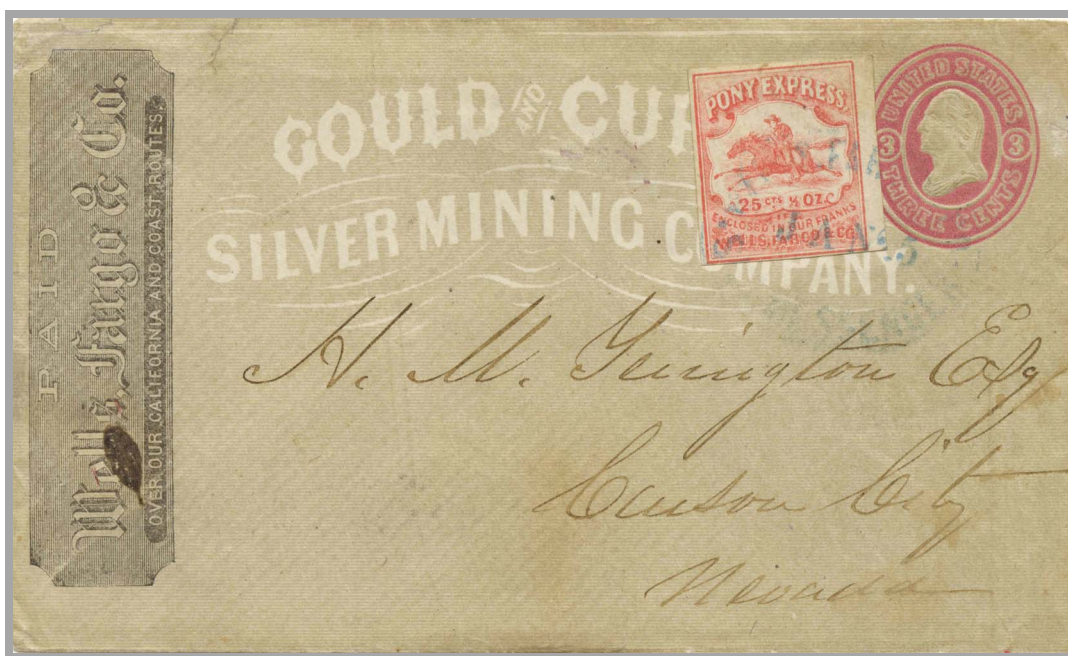 PAID
Wells, Fargo & Co.
OVER OUR CALIFORNIA AND COAST ROUTES.
GOULD AND
SILVER MINING COMPANY.
PONY EXPRESS.
25 CTS ½ OZ.
ENCLOSED IN OUR FRANKS
WELLS, FARGO & CO.
UNITED STATES
3 3
THREE CENTS
H. M. Yerington Esq
Carson City
Nevada